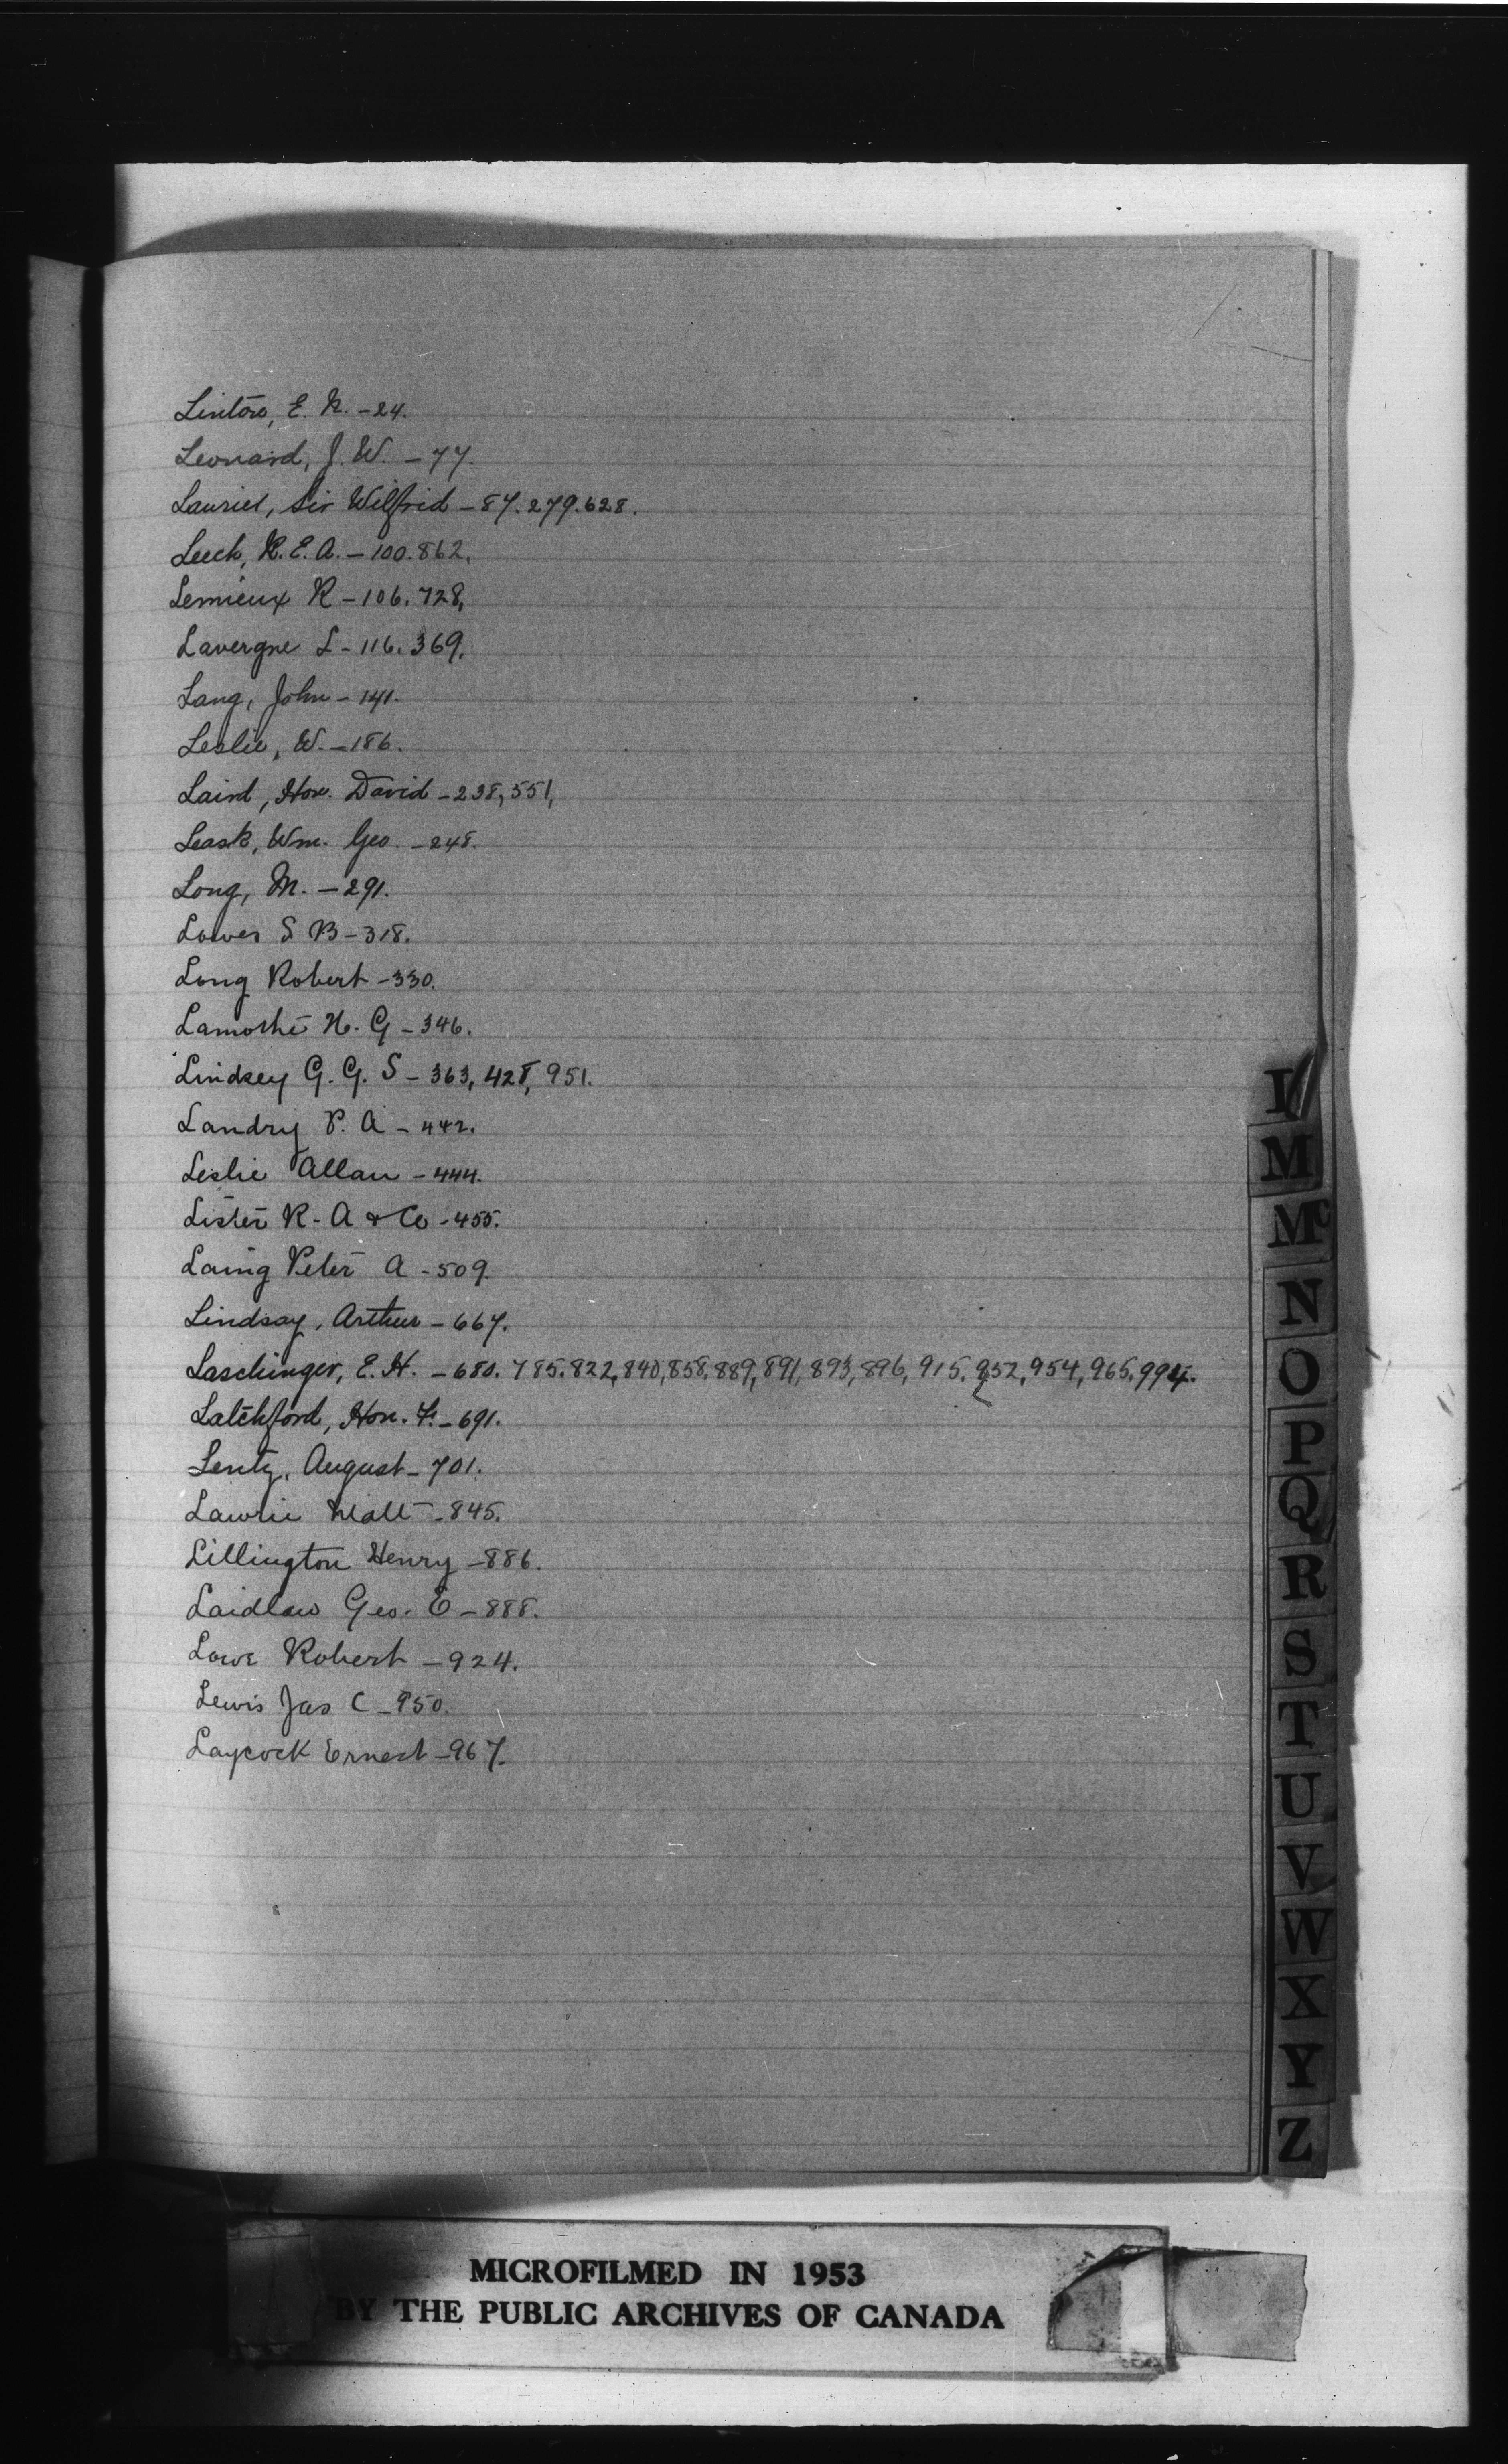 Linton, E. R. - 24.
Leonard, J. W. - 77.
Laurier, Sir Wilfrid - 87. 279. 628.
Leech, R. E. A. - 100. 862.
Lemieux R - 106. 728,
Lavergne L - 116. 369.
Lang, John - 141.
Leslie, W. - 186.
Laird, Hon. David - 238, 551,
Leask, Wm. Geo. - 248.
Long, M. - 291.
Lower S B - 318.
Long Robert - 330.
Lamothe H. G - 346.
Lindsey G. G. S - 363, 428, 951.
Landry P. A - 442.
Leslie Allan - 444.
Lister R. A & Co - 455.
Laing Peter A - 509.
Lindsay, Arthur - 667.
Laschinger, E. H. - 680. 785. 822, 840, 858, 889, 891, 893, 896, 915, 952, 954, 965, 994.
Latchford, Hon. F. - 691.
Lentz, August - 701.
Lawrie Matt - 845.
Lillington Henry - 886.
Laidlaw Geo. E - 888.
Lowe Robert - 924.
Lewis Jas C - 950.
Laycock Ernest - 967.
M
Mc
N
O
P
Q
R
S
T
U
V
W
X
Y
Z
MICROFILMED IN 1953
BY THE PUBLIC ARCHIVES OF CANADA